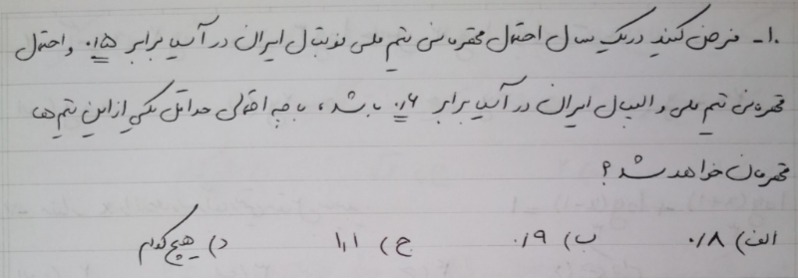 ۱۰- فرض کنید در یک سال احتمال قهرمانی تیم ملی فوتبال ایران در آسیا برابر ۰/۵ و احتمال
قهرمانی تیم ملی والیبال ایران در آسیا برابر ۰/۶ باشد، با چه احتمالی حداقل یکی از این تیم‌ها
قهرمان خواهد شد؟
الف) ۰/۸ ب) ۰/۹ ج) ۱/۱ د) هیچکدام